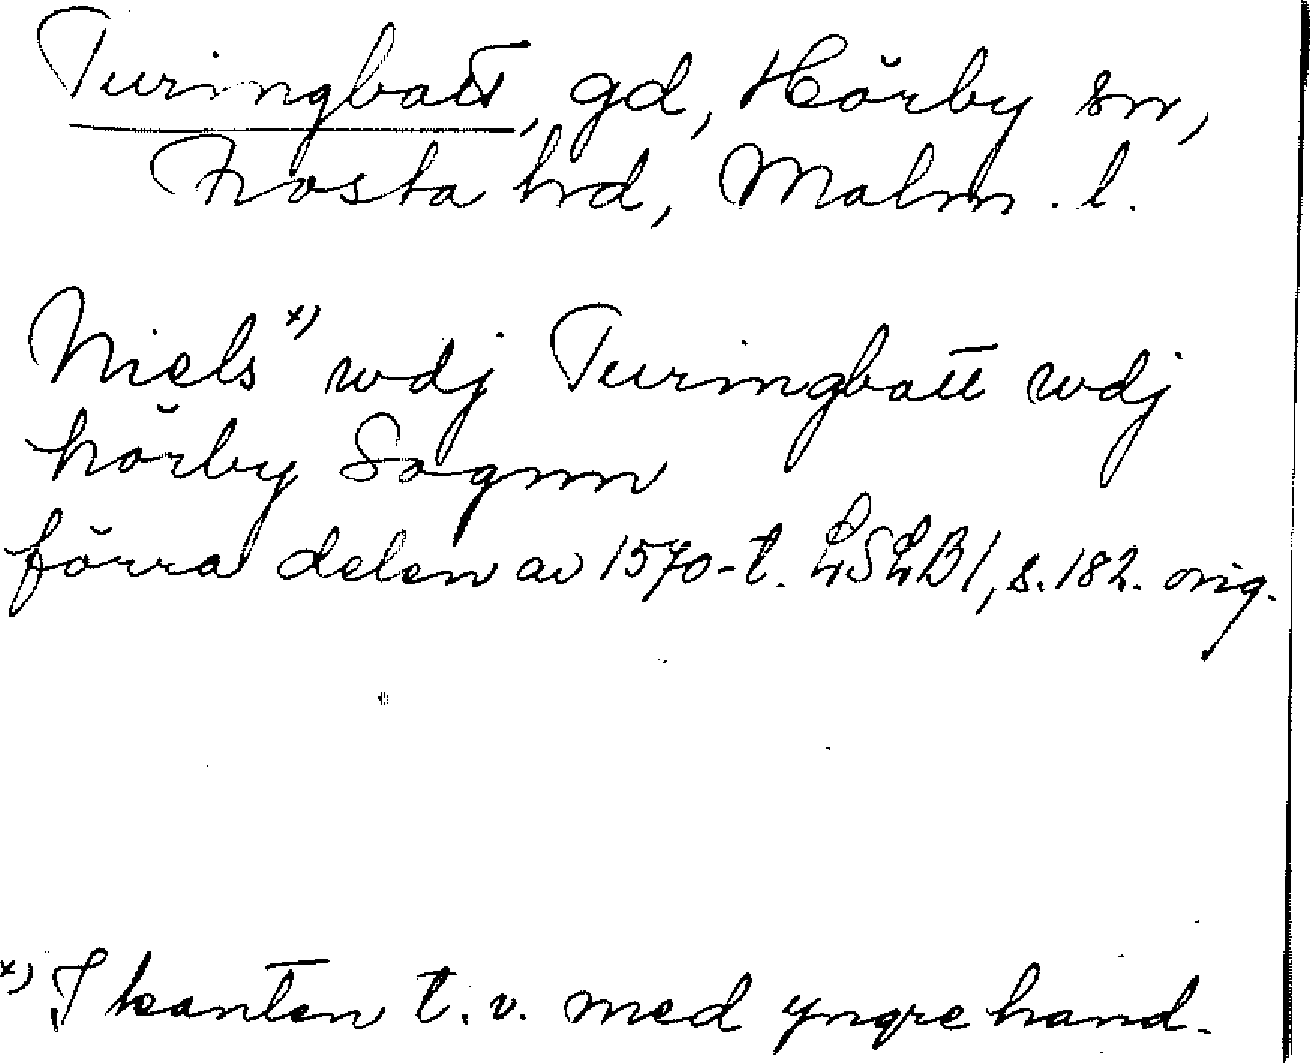 Turingbatt, gd, Hörby sn,
Frosta hd, Malm. l.
Niels x) wdj Turingbatt wdj
hörby Sognn
förra delen av 1570-t. LSLB1, s. 182. orig.
x) I kanten t.v. med yngre hand.